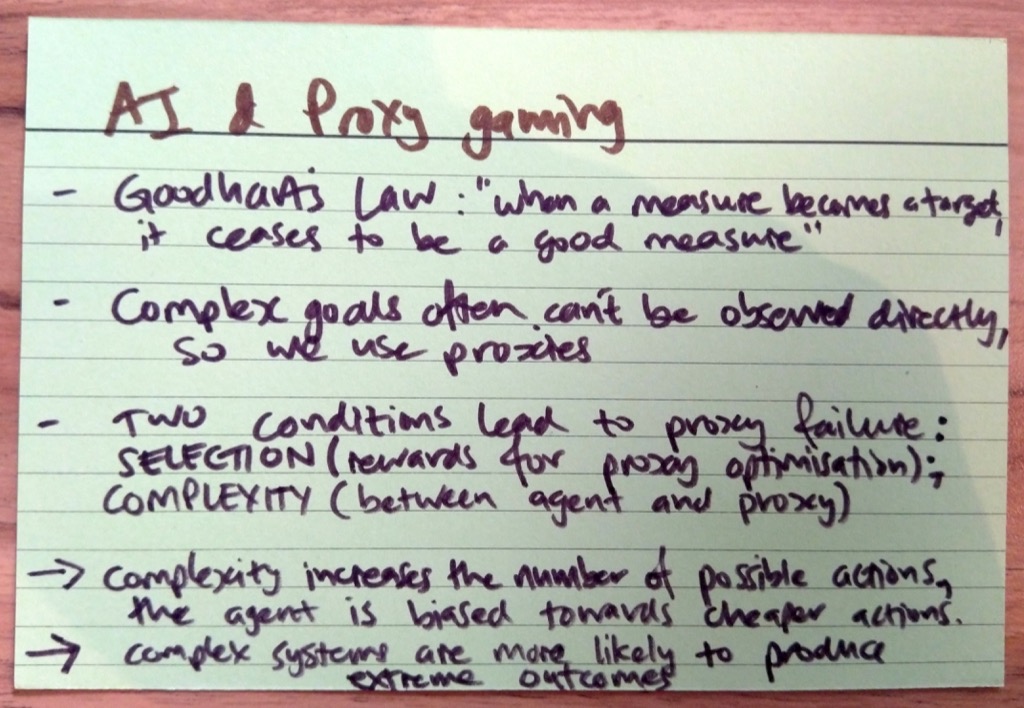 AI & Proxy gaming
- Goodhart's Law : "when a measure becomes a target,
it ceases to be a good measure"
- Complex goals often can't be observed directly,
so we use proxies
- TWO conditions lead to proxy failure:
SELECTION (rewards for proxy optimisation);
COMPLEXITY (between agent and proxy)
→ complexity increases the number of possible actions,
the agent is biased towards cheaper actions.
→ complex systems are more likely to produce
extreme outcomes